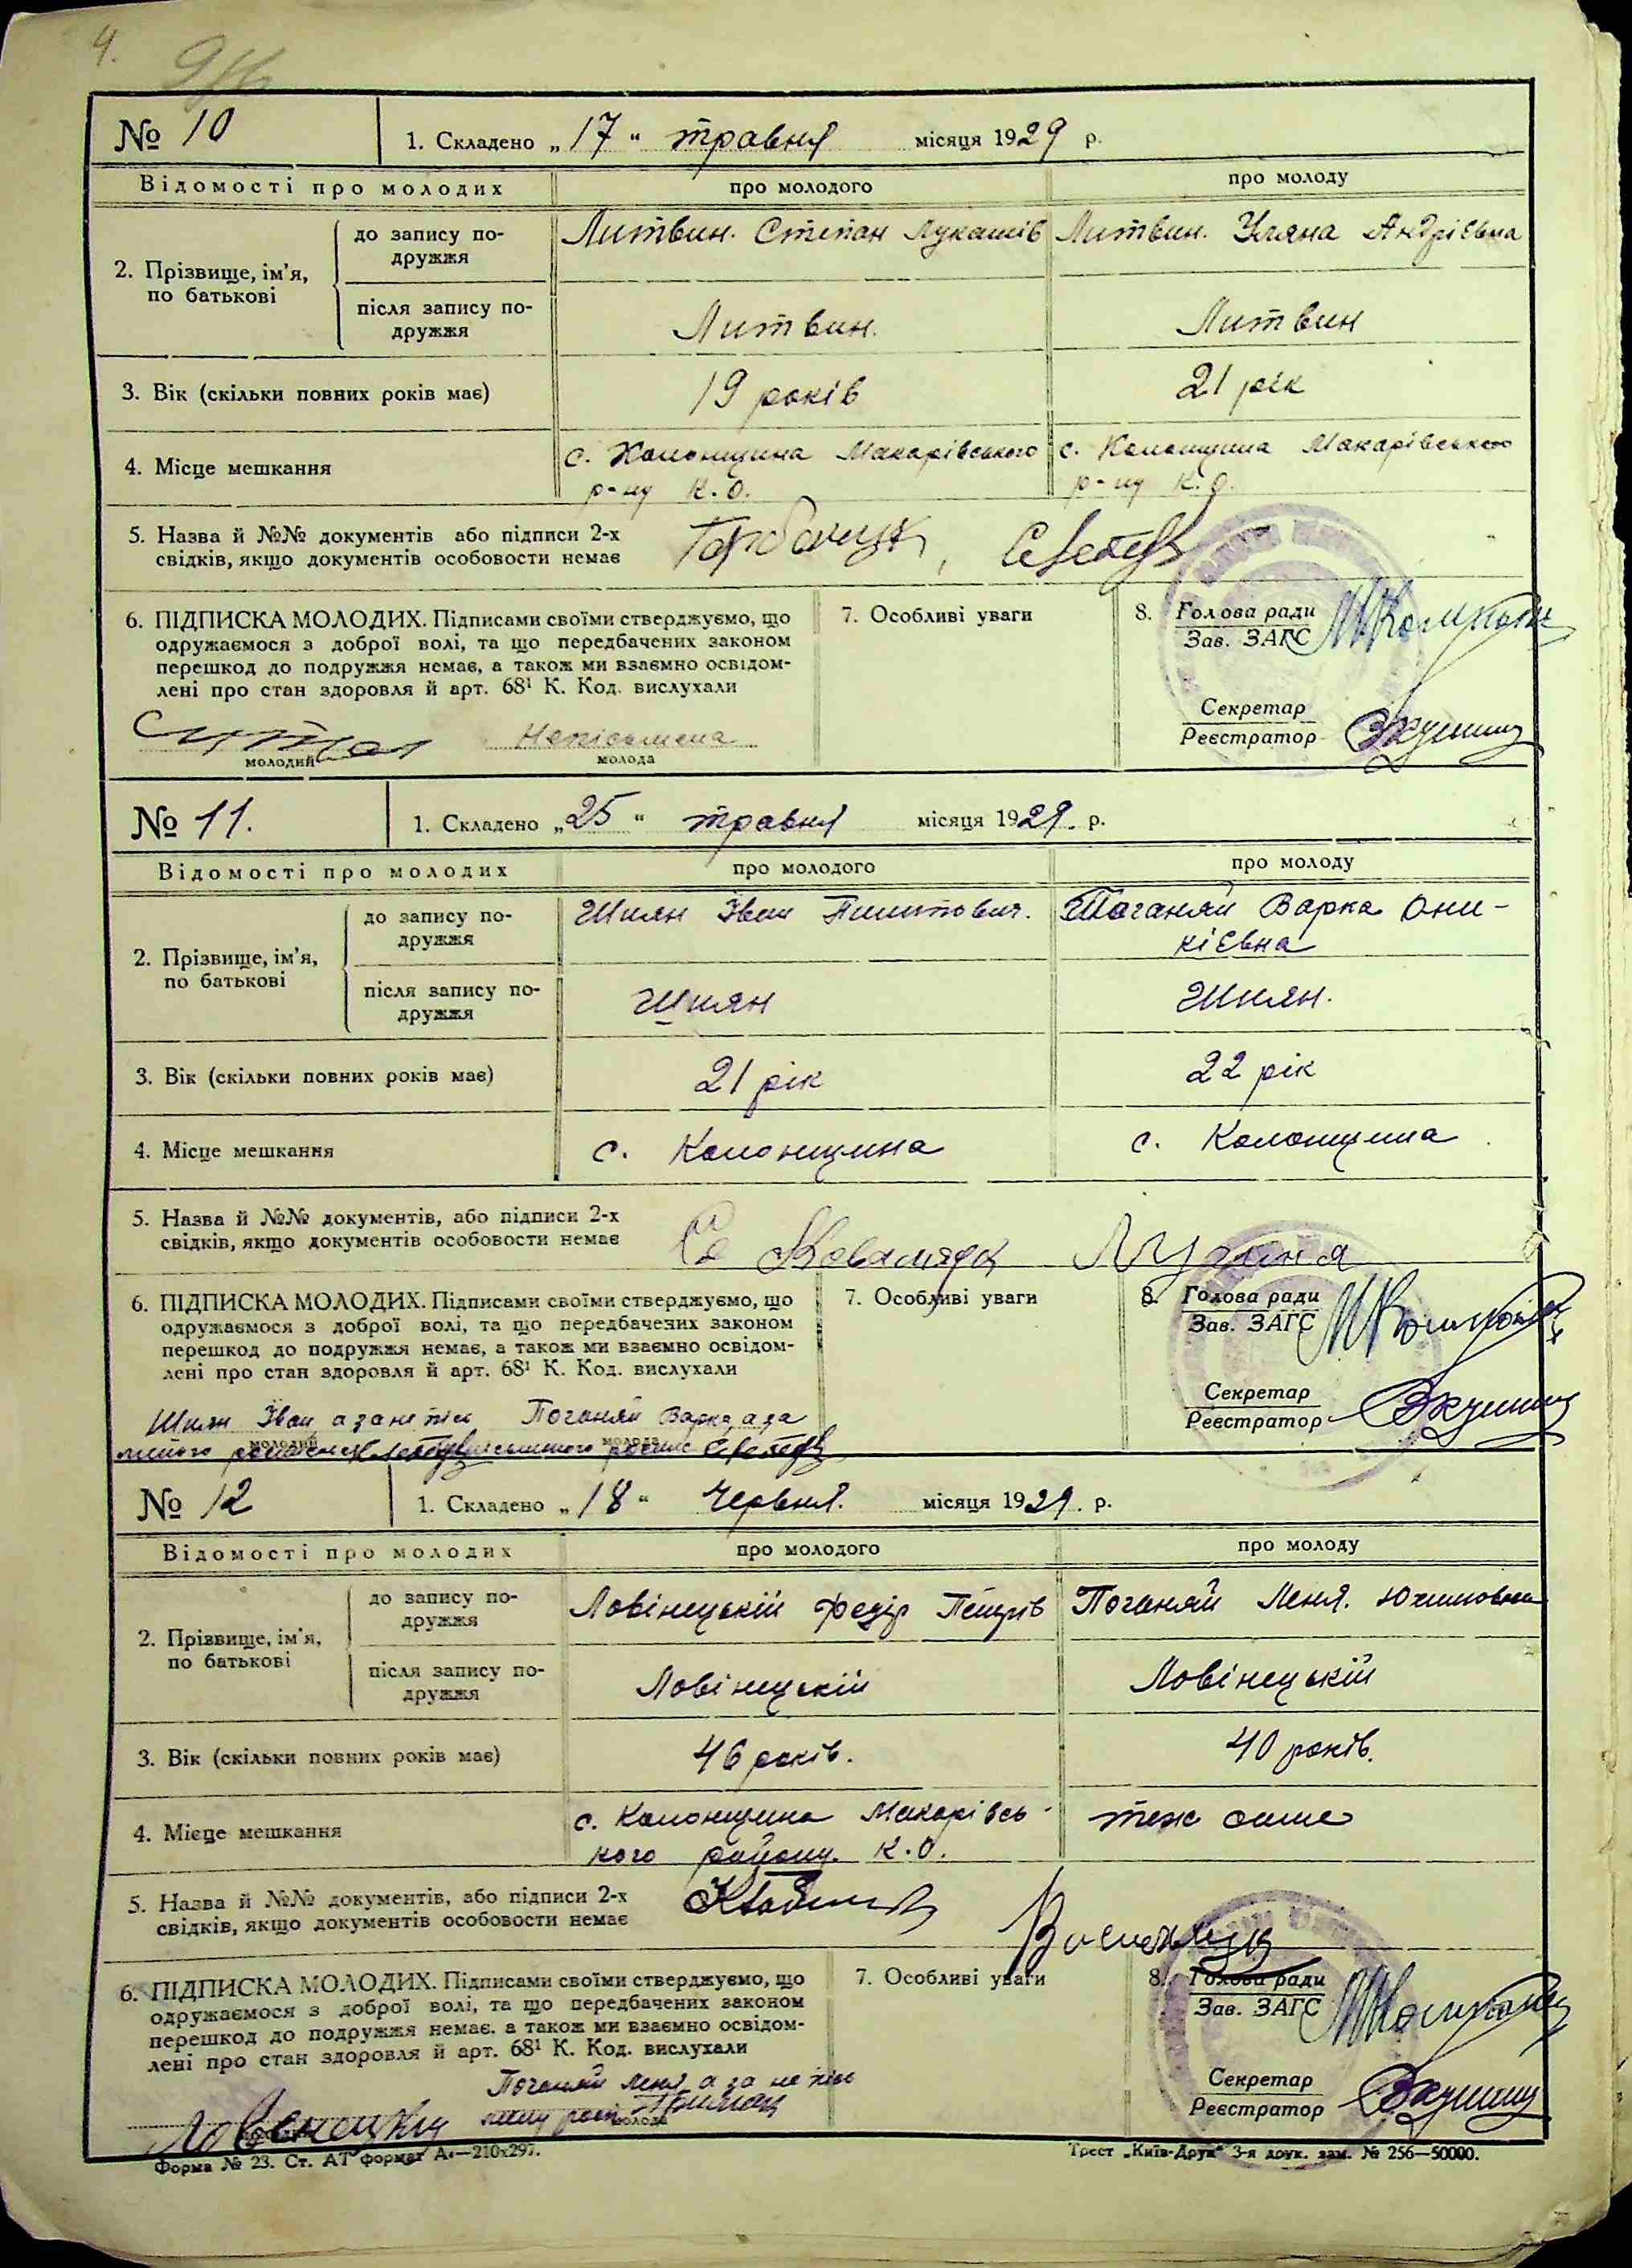 4.
№ 10
1. Складено „17" травня місяця 1929 р.
Відомості про молодих про молодого про молоду
2. Прізвище, ім'я, по батькові
до запису подружжя
Литвин. Степан Лукашів Литвин. Уляна Андрієвна
після запису подружжя
Литвин. Литвин
3. Вік (скільки повних років має) 19 років 21 рік
4. Місце мешкання
с. Колонщина Макарівського с. Колонщина Макарівського
р-ну К.О. р-ну К.О.
5. Назва й №№ документів або підписи 2-х
свідків, якщо документів особовости немає
6. ПІДПИСКА МОЛОДИХ. Підписами своїми стверджуємо, що
одружаємося з доброї волі, та що передбачених законом
перешкод до подружжя немає, а також ми взаємно освідом-
лені про стан здоровля й арт. 68¹ К. Код. вислухали
Неписьмена
молодий молода
7. Особливі уваги
8. Голова ради
Зав. ЗАГС
Секретар
Реєстратор
№ 11.
1. Складено „25" травня місяця 1929. р.
Відомості про молодих про молодого про молоду
2. Прізвище, ім'я, по батькові
до запису подружжя
Шиян Іван Поганяй Варка Они-
кієвна
після запису подружжя
Шиян Шиян.
3. Вік (скільки повних років має) 21 рік 22 рік
4. Місце мешкання с. Колонщина с. Колонщина
5. Назва й №№ документів, або підписи 2-х
свідків, якщо документів особовости немає
6. ПІДПИСКА МОЛОДИХ. Підписами своїми стверджуємо, що
одружаємося з доброї волі, та що передбачених законом
перешкод до подружжя немає, а також ми взаємно освідом-
лені про стан здоровля й арт. 68¹ К. Код. вислухали
Шиян Іван а за Поганяй Варка, а за
молодий молода
7. Особливі уваги
8. Голова ради
Зав. ЗАГС
Секретар
Реєстратор
№ 12
1. Складено „18" Червня. місяця 1929. р.
Відомості про молодих про молодого про молоду
2. Прізвище, ім'я, по батькові
до запису подружжя
Ловінецькій Федір Петрів Поганяй Леня. Юхимовна
після запису подружжя
Ловінецькій Ловінецькій
3. Вік (скільки повних років має) 46 років. 40 років.
4. Місце мешкання
с. Колонщина Макарівсь- теж саме
кого району. К.О.
5. Назва й №№ документів, або підписи 2-х
свідків, якщо документів особовости немає
6. ПІДПИСКА МОЛОДИХ. Підписами своїми стверджуємо, що
одружаємося з доброї волі, та що передбачених законом
перешкод до подружжя немає, а також ми взаємно освідом-
лені про стан здоровля й арт. 68¹ К. Код. вислухали
Поганяй Леня а за не пись
молода
7. Особливі уваги
8. Голова ради
Зав. ЗАГС
Секретар
Реєстратор
Форма № 23. Ст. АТ формат А₄—210х297. Трест „Київ-Друк" 3-я друк. зам. № 256—50000.